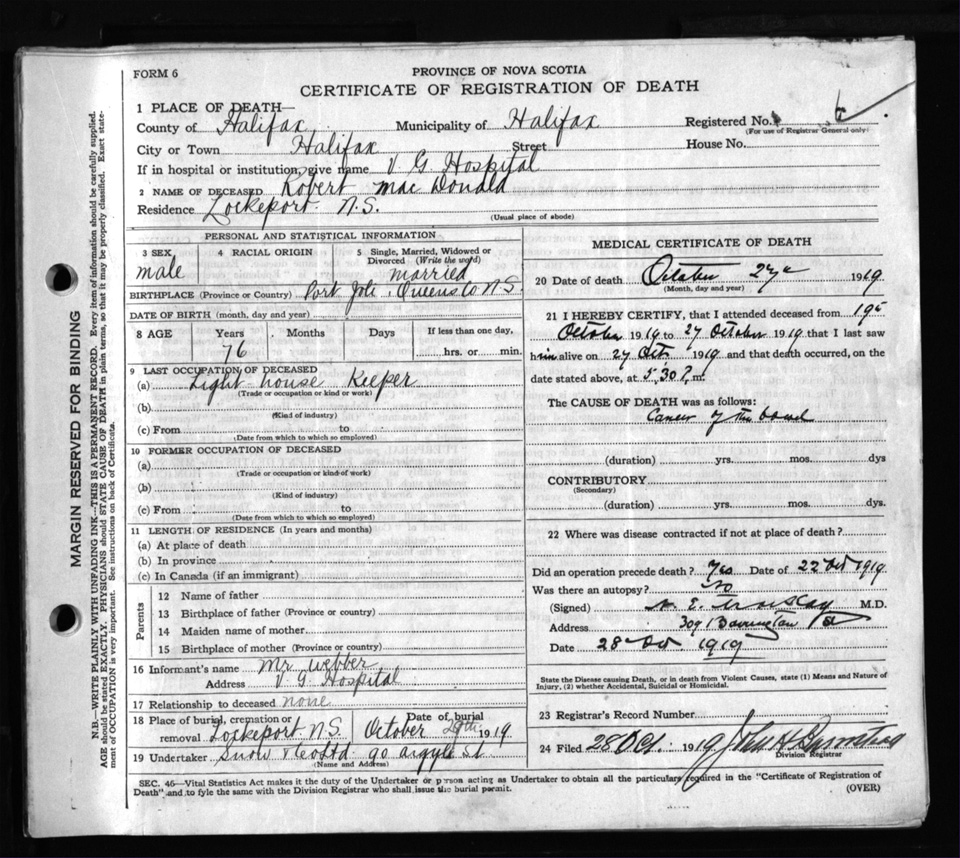 FORM 6
PROVINCE OF NOVA SCOTIA
CERTIFICATE OF REGISTRATION OF DEATH
1 PLACE OF DEATH—
County of Halifax Municipality of Halifax Registered No.
(For use of Registrar General only)
City or Town Halifax Street House No.
If in hospital or institution, give name V G Hospital
2 NAME OF DECEASED Robert Mac Donald
Residence Lockeport N.S.
(Usual place of abode)
PERSONAL AND STATISTICAL INFORMATION
3 SEX male 4 RACIAL ORIGIN 5 Single, Married, Widowed or Divorced (Write the word) married
BIRTHPLACE (Province or Country) Port Joli, Queens Co N.S.
DATE OF BIRTH (month, day and year)
8 AGE Years 76 Months Days If less than one day, hrs. or min.
9 LAST OCCUPATION OF DECEASED
(a) Light house Keeper
(Trade or occupation or kind or work)
(b)
(Kind of industry)
(c) From to
(Date from which to which so employed)
10 FORMER OCCUPATION OF DECEASED
(a)
(Trade or occupation or kind of work)
(b)
(Kind of industry)
(c) From to
(Date from which to which so employed)
11 LENGTH OF RESIDENCE (In years and months)
(a) At place of death
(b) In province
(c) In Canada (if an immigrant)
Parents
12 Name of father
13 Birthplace of father (Province or country)
14 Maiden name of mother
15 Birthplace of mother (Province or country)
16 Informant's name Mr Webber
Address V G Hospital
17 Relationship to deceased none
18 Place of burial, cremation or removal Lockeport N.S. Date of burial October 29th 1919
19 Undertaker Snow & Co Ltd 90 Argyle St
(Name and Address)
MEDICAL CERTIFICATE OF DEATH
20 Date of death October 27 1919
(Month, day and year)
21 I HEREBY CERTIFY, that I attended deceased from 19
October 1919 to 27 October 1919 that I last saw
him alive on 27 Oct 1919 and that death occurred, on the
date stated above, at 5.30 P. m.
The CAUSE OF DEATH was as follows:
Cancer of the bowel
(duration) yrs. mos. dys
CONTRIBUTORY
(Secondary)
(duration) yrs. mos. dys.
22 Where was disease contracted if not at place of death?
Did an operation precede death? Yes Date of 22 Oct 1919
Was there an autopsy? No
(Signed) M.D.
Address 309 Barrington St
Date 28 Oct 1919
State the Disease causing Death, or in death from Violent Causes, state (1) Means and Nature of
Injury, (2) whether Accidental, Suicidal or Homicidal.
23 Registrar's Record Number
24 Filed 28 Oct. 1919
Division Registrar
SEC. 46—Vital Statistics Act makes it the duty of the Undertaker or person acting as Undertaker to obtain all the particulars required in the "Certificate of Registration of
Death" and to fyle the same with the Division Registrar who shall issue the burial permit. (OVER)
MARGIN RESERVED FOR BINDING
N.B.—WRITE PLAINLY WITH UNFADING INK—THIS IS A PERMANENT RECORD. Every item of information should be carefully supplied.
AGE should be stated EXACTLY. PHYSICIANS should STATE CAUSE OF DEATH in plain terms, so that it may be properly classified. Exact state-
ment of OCCUPATION is very important. See instructions on back of Certificate.